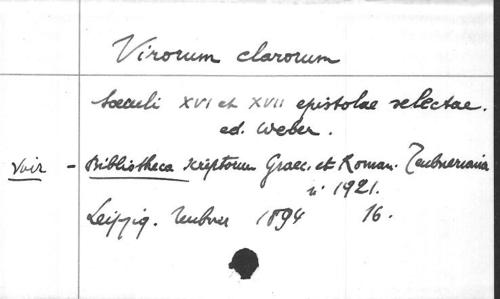 Virorum clarorum
saeculi XVI et XVII epistolae selectae.
ed. Weber.
Voir - Bibliotheca scriptorum Graec. et Roman. Teubneriana
n° 1921.
Leipzig. Teubner 1894 16.